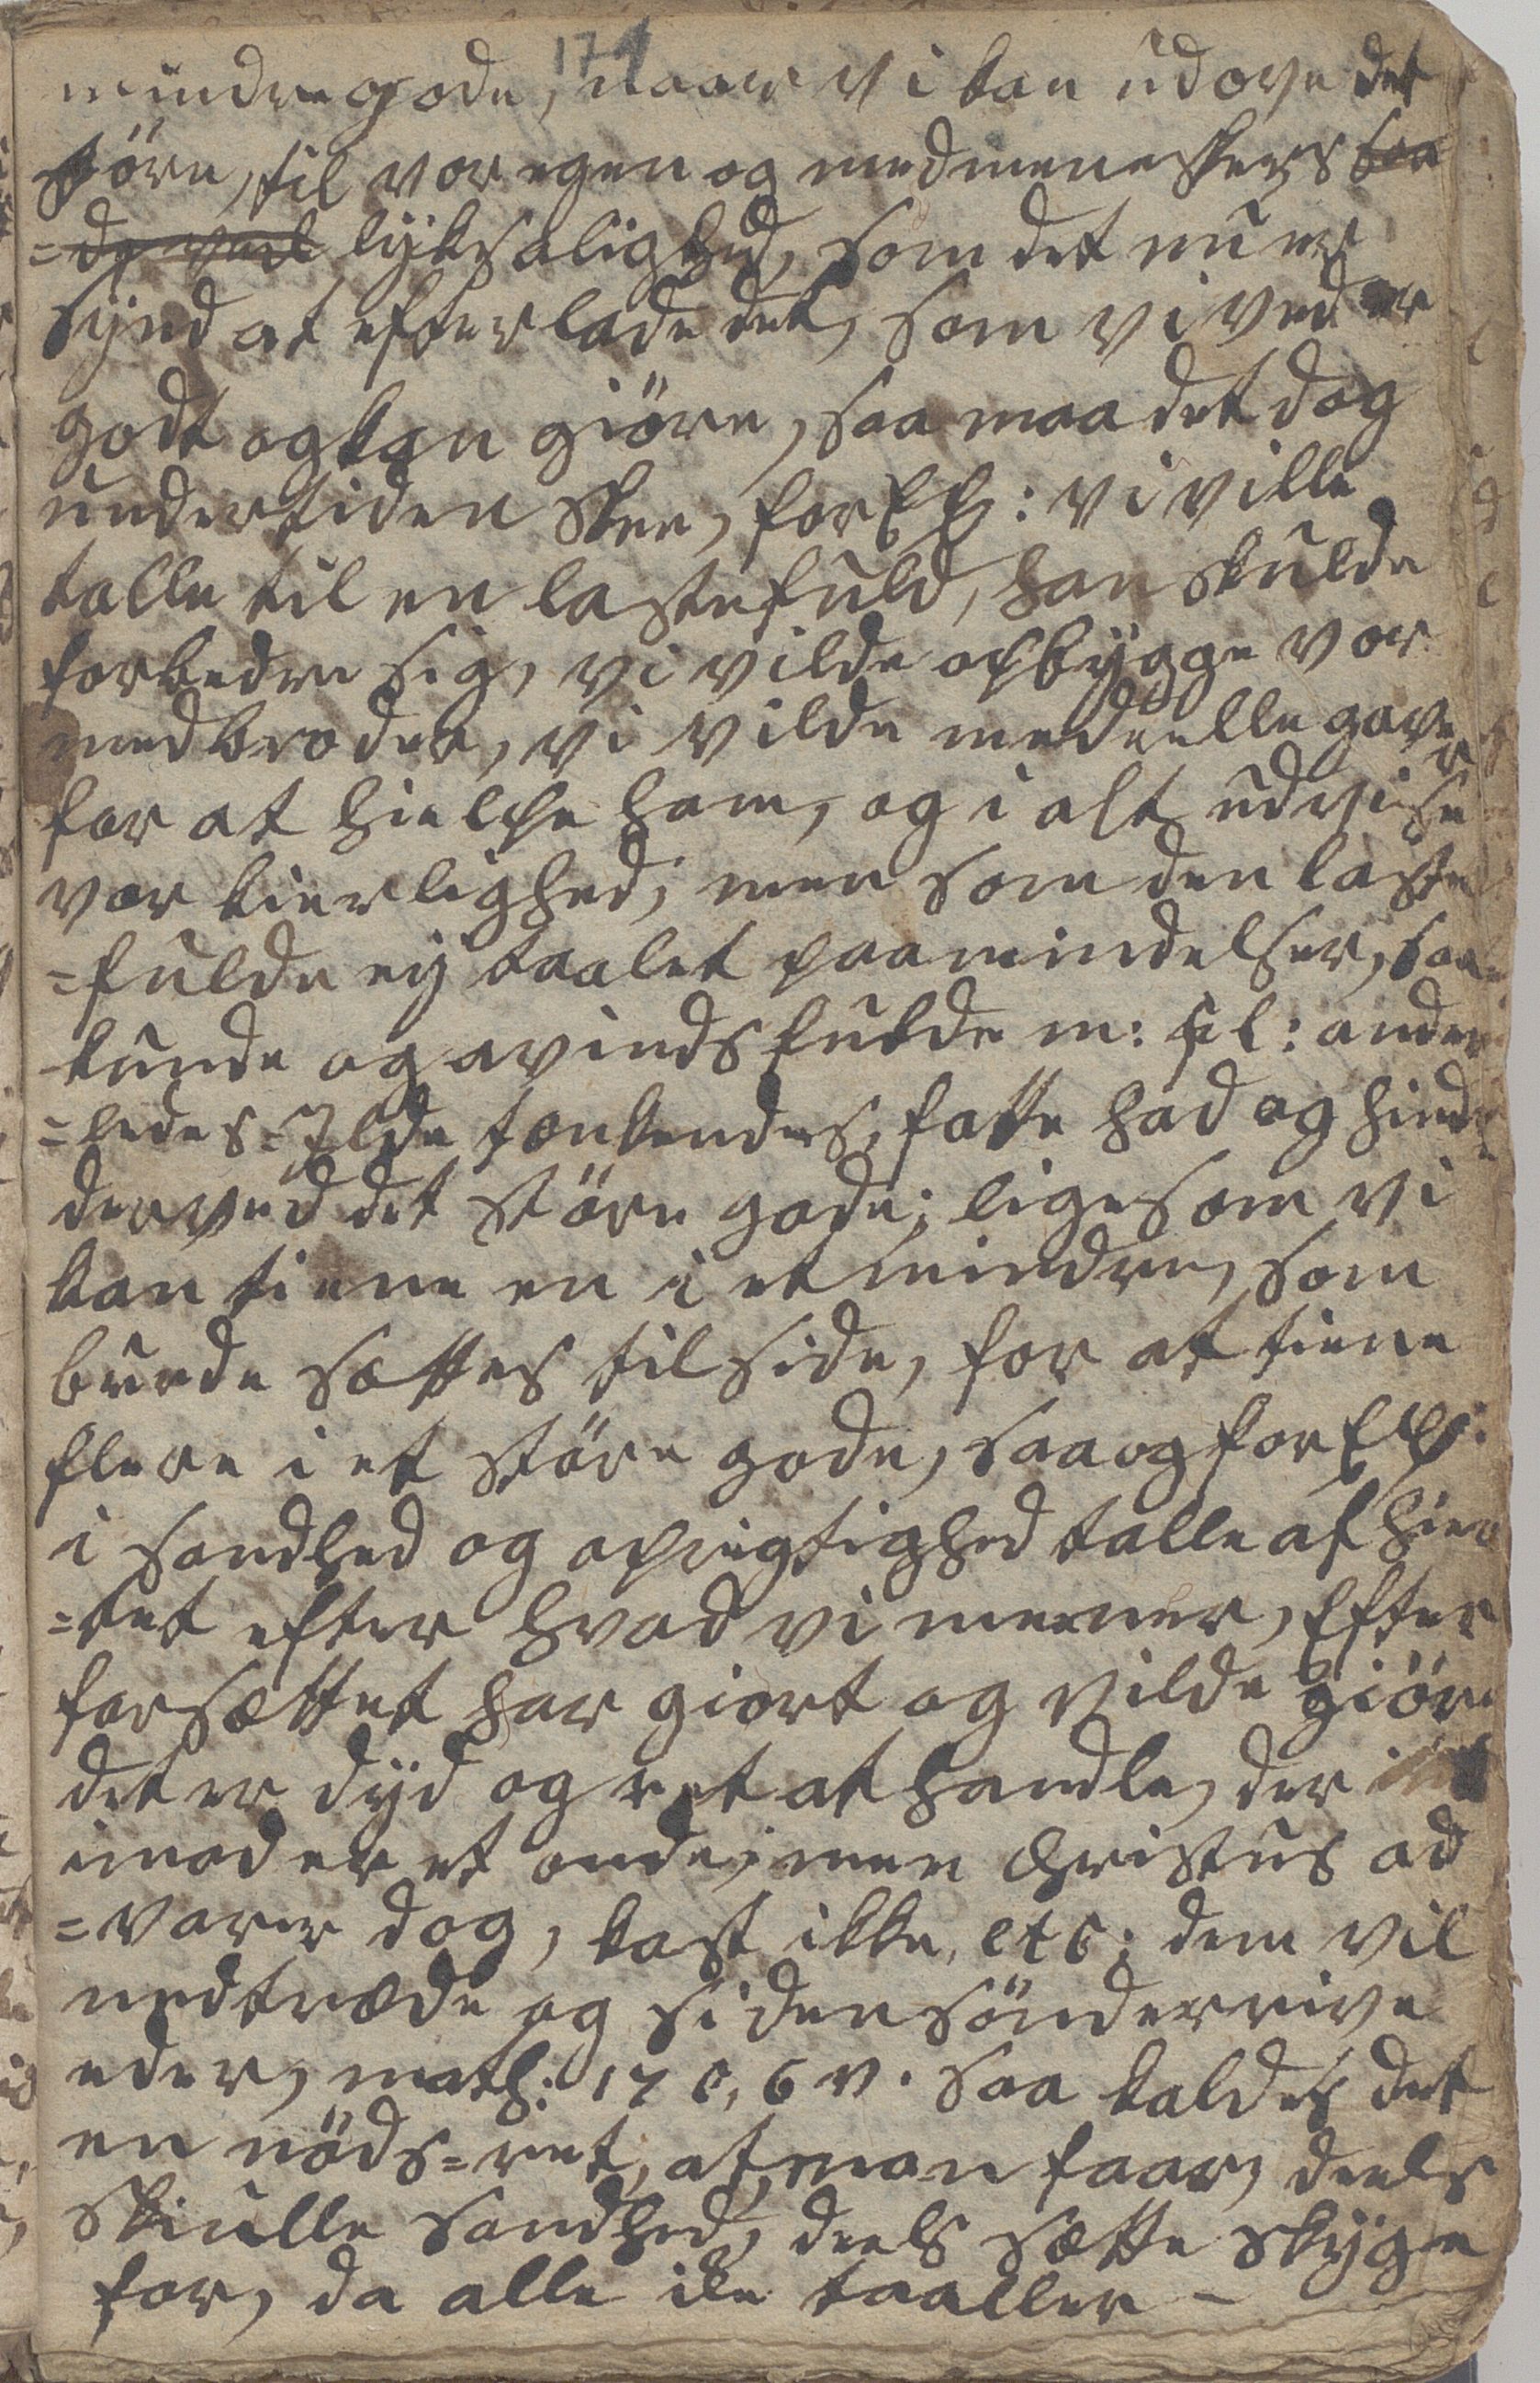 171
mindre gode, naar vi kan udøve det
störe, til vor egen og medmeneskers saa
=dg vel lÿksalighed, som det nu er
sÿnd at efterlade det, som vi ved er
godt og kan giöre, saa maa det dog
undertiden skee, for Ex: vi ville
talle til en lastefuld, han skulde
forbedre sig, vi vilde opbÿgge vor
medbroder, vi vilde meddeelle gaver
for at hielpe ham, og i alt udvise
vor kierlighed; men som den laste
=fulde eÿ taalet paamindelser, saa
kunde og avindsfulde m: fl: ander
=ledes=Ilde tænkendes, fatte had og hindre
derved det störe gode; ligesom vi
kan tiene en i et mindre, som
burde sættes til side, for at tiene
flere i et störe gode, saa og for Ex:
i sandhed og oprigtighed talle af hier
=tet efter hvad vi meener, Efter
forsættet har giort og vilde giöre
det er dÿd og ret at handle, der
imod er et onde; men Christus ad
=varer dog, kast ikke, etc; dem vil
nedtræde og siden sönderrive
eder, math: 17 c, 6 v. saa kaldes det
en nöds=ret, at man faar, deels
skiulle sandhed, deels sætte skÿge
for, da alle ike taaller –